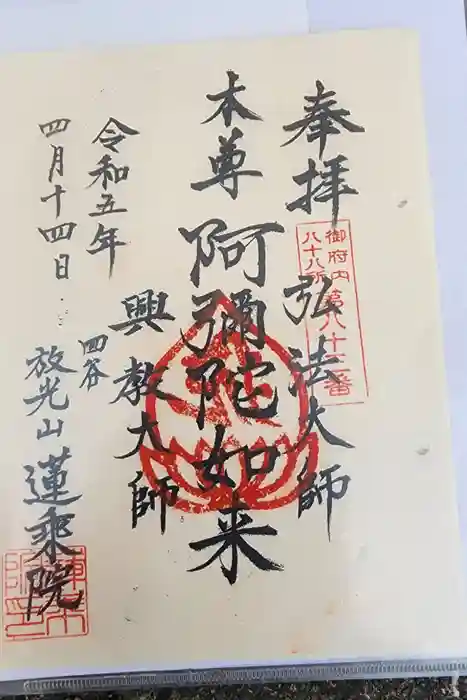 奉拝 弘法大師
御府内第八十三番
八十八所
本尊 阿彌陀如来
興教大師
令和五年
四月十四日
四谷
放光山 蓮乘院